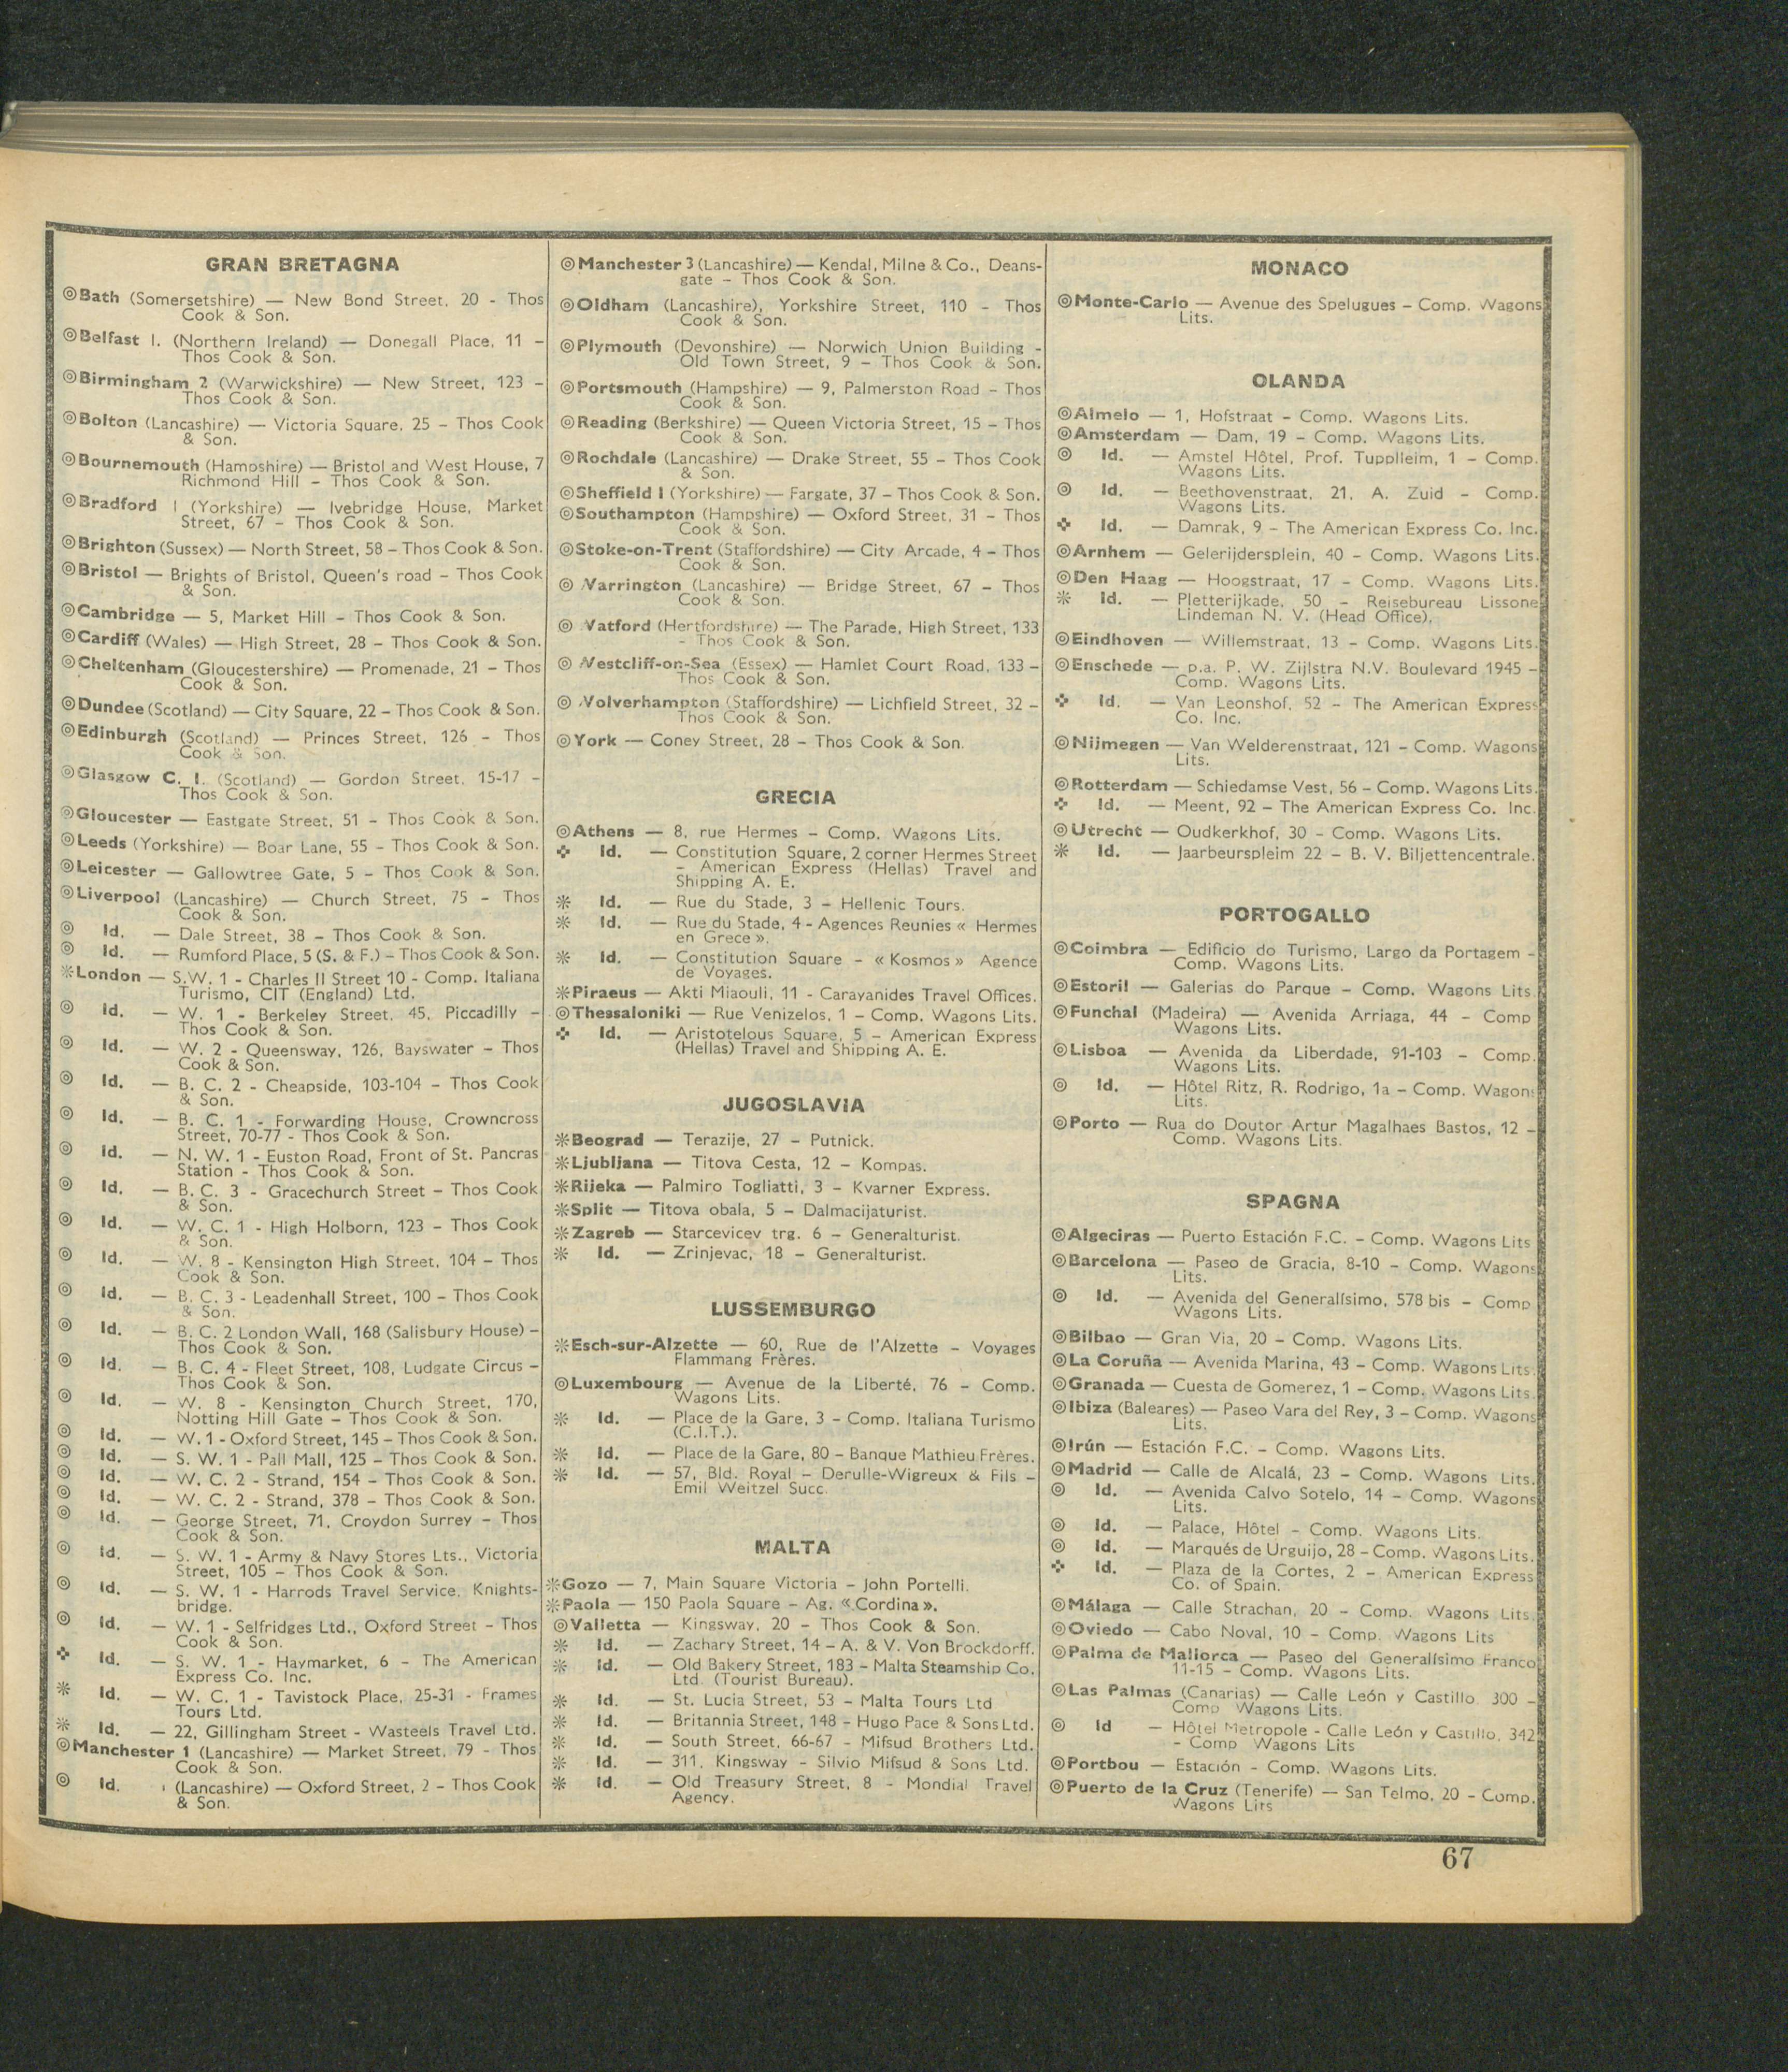 GRAN BRETAGNA
◎Bath (Somersetshire) — New Bond Street, 20 - Thos
Cook & Son.
◎Belfast I. (Northern Ireland) — Donegall Place, 11 –
Thos Cook & Son.
◎Birmingham 2 (Warwickshire) — New Street, 123 –
Thos Cook & Son.
◎Bolton (Lancashire) — Victoria Square, 25 – Thos Cook
& Son.
◎Bournemouth (Hampshire) — Bristol and West House, 7
Richmond Hill – Thos Cook & Son.
◎Bradford I (Yorkshire) — Ivebridge House, Market
Street, 67 – Thos Cook & Son.
◎Brighton (Sussex) — North Street, 58 – Thos Cook & Son.
◎Bristol — Brights of Bristol, Queen's road – Thos Cook
& Son.
◎Cambridge — 5, Market Hill – Thos Cook & Son.
◎Cardiff (Wales) — High Street, 28 – Thos Cook & Son.
◎Cheltenham (Gloucestershire) — Promenade, 21 – Thos
Cook & Son.
◎Dundee (Scotland) — City Square, 22 – Thos Cook & Son.
◎Edinburgh (Scotland) — Princes Street, 126 – Thos
Cook & Son.
◎Glasgow C. I. (Scotland) — Gordon Street, 15-17 –
Thos Cook & Son.
◎Gloucester — Eastgate Street, 51 – Thos Cook & Son.
◎Leeds (Yorkshire) — Boar Lane, 55 – Thos Cook & Son.
◎Leicester — Gallowtree Gate, 5 – Thos Cook & Son.
◎Liverpool (Lancashire) — Church Street, 75 – Thos
Cook & Son.
◎ Id. — Dale Street, 38 – Thos Cook & Son.
◎ Id. — Rumford Place, 5 (S. & F.) – Thos Cook & Son.
✳London — S.W. 1 - Charles II Street 10 - Comp. Italiana
Turismo, CIT (England) Ltd.
◎ Id. — W. 1 - Berkeley Street, 45, Piccadilly –
Thos Cook & Son.
◎ Id. — W. 2 - Queensway, 126, Bayswater – Thos
Cook & Son.
◎ Id. — B. C. 2 - Cheapside, 103-104 – Thos Cook
& Son.
◎ Id. — B. C. 1 - Forwarding House, Crowncross
Street, 70-77 - Thos Cook & Son.
◎ Id. — N. W. 1 - Euston Road, Front of St. Pancras
Station - Thos Cook & Son.
◎ Id. — B. C. 3 - Gracechurch Street – Thos Cook
& Son.
◎ Id. — W. C. 1 - High Holborn, 123 – Thos Cook
& Son.
◎ Id. — W. 8 - Kensington High Street, 104 – Thos
Cook & Son.
◎ Id. — B. C. 3 - Leadenhall Street, 100 – Thos Cook
& Son.
◎ Id. — B. C. 2 London Wall, 168 (Salisbury House) –
Thos Cook & Son.
◎ Id. — B. C. 4 - Fleet Street, 108, Ludgate Circus –
Thos Cook & Son.
◎ Id. — W. 8 - Kensington Church Street, 170,
Notting Hill Gate – Thos Cook & Son.
◎ Id. — W. 1 - Oxford Street, 145 – Thos Cook & Son.
◎ Id. — S. W. 1 - Pall Mall, 125 – Thos Cook & Son.
◎ Id. — W. C. 2 - Strand, 154 – Thos Cook & Son.
◎ Id. — W. C. 2 - Strand, 378 – Thos Cook & Son.
◎ Id. — George Street, 71, Croydon Surrey – Thos
Cook & Son.
◎ Id. — S. W. 1 - Army & Navy Stores Lts., Victoria
Street, 105 – Thos Cook & Son.
◎ Id. — S. W. 1 - Harrods Travel Service, Knights-
bridge.
◎ Id. — W. 1 - Selfridges Ltd., Oxford Street – Thos
Cook & Son.
✤ Id. — S. W. 1 - Haymarket, 6 – The American
Express Co. Inc.
✳ Id. — W. C. 1 - Tavistock Place, 25-31 - Frames
Tours Ltd.
✳ Id. — 22, Gillingham Street - Wasteels Travel Ltd.
◎Manchester 1 (Lancashire) — Market Street, 79 - Thos
Cook & Son.
◎ Id. (Lancashire) — Oxford Street, 2 – Thos Cook
& Son.
◎Manchester 3 (Lancashire) — Kendal, Milne & Co., Deans-
gate – Thos Cook & Son.
◎Oldham (Lancashire), Yorkshire Street, 110 – Thos
Cook & Son.
◎Plymouth (Devonshire) — Norwich Union Building -
Old Town Street, 9 – Thos Cook & Son.
◎Portsmouth (Hampshire) — 9, Palmerston Road – Thos
Cook & Son.
◎Reading (Berkshire) — Queen Victoria Street, 15 – Thos
Cook & Son.
◎Rochdale (Lancashire) — Drake Street, 55 – Thos Cook
& Son.
◎Sheffield I (Yorkshire) — Fargate, 37 – Thos Cook & Son.
◎Southampton (Hampshire) — Oxford Street, 31 – Thos
Cook & Son.
◎Stoke-on-Trent (Staffordshire) — City Arcade, 4 – Thos
Cook & Son.
◎Warrington (Lancashire) — Bridge Street, 67 – Thos
Cook & Son.
◎Watford (Hertfordshire) — The Parade, High Street, 133
– Thos Cook & Son.
◎Westcliff-on-Sea (Essex) — Hamlet Court Road, 133 –
Thos Cook & Son.
◎Wolverhampton (Staffordshire) — Lichfield Street, 32 –
Thos Cook & Son.
◎York — Coney Street, 28 – Thos Cook & Son.
GRECIA
◎Athens — 8, rue Hermes – Comp. Wagons Lits.
✤ Id. — Constitution Square, 2 corner Hermes Street
– American Express (Hellas) Travel and
Shipping A. E.
✳ Id. — Rue du Stade, 3 – Hellenic Tours.
✳ Id. — Rue du Stade, 4 - Agences Reunies « Hermes
en Grece ».
✳ Id. — Constitution Square – « Kosmos » Agence
de Voyages.
✳Piraeus — Akti Miaouli, 11 - Carayanides Travel Offices.
◎Thessaloniki — Rue Venizelos, 1 – Comp. Wagons Lits.
✤ Id. — Aristotelous Square, 5 – American Express
(Hellas) Travel and Shipping A. E.
JUGOSLAVIA
✳Beograd — Terazije, 27 – Putnick.
✳Ljubljana — Titova Cesta, 12 – Kompas.
✳Rijeka — Palmiro Togliatti, 3 – Kvarner Express.
✳Split — Titova obala, 5 – Dalmacijaturist.
✳Zagreb — Starcevicev trg. 6 – Generalturist.
✳ Id. — Zrinjevac, 18 – Generalturist.
LUSSEMBURGO
✳Esch-sur-Alzette — 60, Rue de l'Alzette – Voyages
Flammang Frères.
◎Luxembourg — Avenue de la Liberté, 76 – Comp.
Wagons Lits.
✳ Id. — Place de la Gare, 3 – Comp. Italiana Turismo
(C.I.T.).
✳ Id. — Place de la Gare, 80 – Banque Mathieu Frères.
✳ Id. — 57, Bld. Royal – Derulle-Wigreux & Fils –
Emil Weitzel Succ.
MALTA
✳Gozo — 7, Main Square Victoria – John Portelli.
✳Paola — 150 Paola Square – Ag. « Cordina ».
◎Valletta — Kingsway, 20 – Thos Cook & Son.
✳ Id. — Zachary Street, 14 – A. & V. Von Brockdorff.
✳ Id. — Old Bakery Street, 183 – Malta Steamship Co.
Ltd. (Tourist Bureau).
✳ Id. — St. Lucia Street, 53 – Malta Tours Ltd
✳ Id. — Britannia Street, 148 – Hugo Pace & Sons Ltd.
✳ Id. — South Street, 66-67 – Mifsud Brothers Ltd.
✳ Id. — 311, Kingsway – Silvio Mifsud & Sons Ltd.
✳ Id. — Old Treasury Street, 8 – Mondial Travel
Agency.
MONACO
◎Monte-Carlo — Avenue des Spelugues – Comp. Wagons
Lits.
OLANDA
◎Almelo — 1, Hofstraat – Comp. Wagons Lits.
◎Amsterdam — Dam, 19 – Comp. Wagons Lits.
◎ Id. — Amstel Hôtel, Prof. Tupplleim, 1 – Comp.
Wagons Lits.
◎ Id. — Beethovenstraat, 21, A. Zuid – Comp.
Wagons Lits.
✤ Id. — Damrak, 9 – The American Express Co. Inc.
◎Arnhem — Gelerijdersplein, 40 – Comp. Wagons Lits.
◎Den Haag — Hoogstraat, 17 – Comp. Wagons Lits.
✳ Id. — Pletterijkade, 50 – Reisebureau Lissone
Lindeman N. V. (Head Office).
◎Eindhoven — Willemstraat, 13 – Comp. Wagons Lits.
◎Enschede — p.a. P. W. Zijlstra N.V. Boulevard 1945 –
Comp. Wagons Lits.
✤ Id. — Van Leonshof, 52 – The American Express
Co. Inc.
◎Nijmegen — Van Welderenstraat, 121 – Comp. Wagons
Lits.
◎Rotterdam — Schiedamse Vest, 56 – Comp. Wagons Lits.
✤ Id. — Meent, 92 – The American Express Co. Inc.
◎Utrecht — Oudkerkhof, 30 – Comp. Wagons Lits.
✳ Id. — Jaarbeurspleim 22 – B. V. Biljettencentrale.
PORTOGALLO
◎Coimbra — Edificio do Turismo, Largo da Portagem –
Comp. Wagons Lits.
◎Estoril — Galerias do Parque – Comp. Wagons Lits.
◎Funchal (Madeira) — Avenida Arriaga, 44 – Comp
Wagons Lits.
◎Lisboa — Avenida da Liberdade, 91-103 – Comp.
Wagons Lits.
◎ Id. — Hôtel Ritz, R. Rodrigo, 1a – Comp. Wagons
Lits.
◎Porto — Rua do Doutor Artur Magalhaes Bastos, 12 –
Comp. Wagons Lits.
SPAGNA
◎Algeciras — Puerto Estación F.C. – Comp. Wagons Lits
◎Barcelona — Paseo de Gracia, 8-10 – Comp. Wagons
Lits.
◎ Id. — Avenida del Generalísimo, 578 bis – Comp
Wagons Lits.
◎Bilbao — Gran Via, 20 – Comp. Wagons Lits.
◎La Coruña — Avenida Marina, 43 – Comp. Wagons Lits.
◎Granada — Cuesta de Gomerez, 1 – Comp. Wagons Lits.
◎Ibiza (Baleares) — Paseo Vara del Rey, 3 – Comp. Wagons
Lits.
◎Irún — Estación F.C. – Comp. Wagons Lits.
◎Madrid — Calle de Alcalá, 23 – Comp. Wagons Lits.
◎ Id. — Avenida Calvo Sotelo, 14 – Comp. Wagons
Lits.
◎ Id. — Palace, Hôtel – Comp. Wagons Lits.
◎ Id. — Marqués de Urguijo, 28 – Comp. Wagons Lits.
✤ Id. — Plaza de la Cortes, 2 – American Express
Co. of Spain.
◎Málaga — Calle Strachan, 20 – Comp. Wagons Lits.
◎Oviedo — Cabo Noval, 10 – Comp. Wagons Lits
◎Palma de Mallorca — Paseo del Generalísimo Franco
11-15 – Comp. Wagons Lits.
◎Las Palmas (Canarias) — Calle León y Castillo 300 –
Comp Wagons Lits.
◎ Id — Hôtel Metropole - Calle León y Castillo, 342
– Comp Wagons Lits
◎Portbou — Estación – Comp. Wagons Lits.
◎Puerto de la Cruz (Tenerife) — San Telmo, 20 – Comp.
Wagons Lits
67